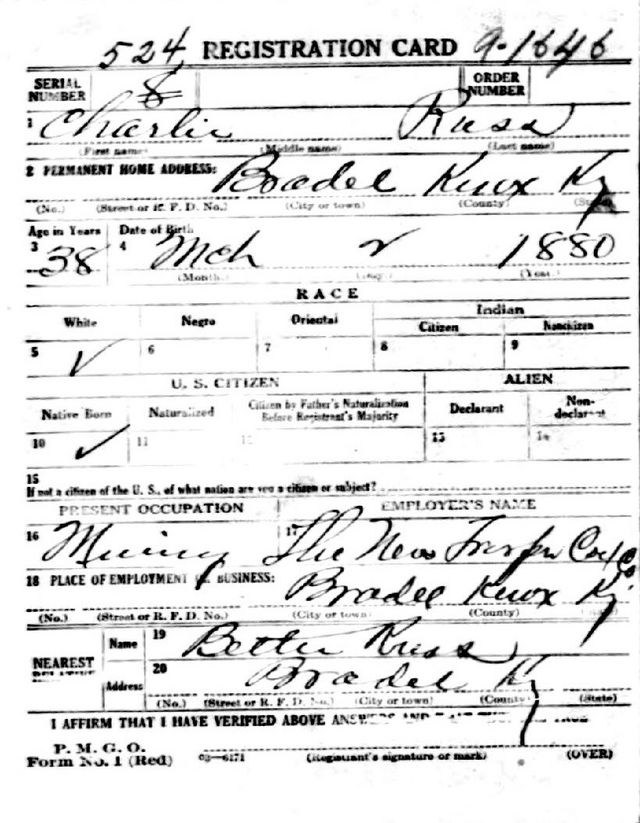 524 REGISTRATION CARD 9-1646
SERIAL NUMBER 8 ORDER NUMBER
1 Charlie Russ
(First name) (Middle name) (Last name)
2 PERMANENT HOME ADDRESS: Bradel Knox Ky
(No.) (Street or R. F. D. No.) (City or town) (County) (State)
Age in Years Date of Birth
3 38 4 Mch 2 1880
(Month.) (Day.) (Year.)
RACE
White Negro Oriental Indian
Citizen Noncitizen
5 ✓ 6 7 8 9
U. S. CITIZEN ALIEN
Native Born Naturalized Citizen by Father's Naturalization Before Registrant's Majority Declarant Non-declarant
10 ✓ 11 12 13 14
15
If not a citizen of the U. S., of what nation are you a citizen or subject?
PRESENT OCCUPATION EMPLOYER'S NAME
16 Mining 17 The New Coal Co
18 PLACE OF EMPLOYMENT OR BUSINESS: Bradel Knox Ky
(No.) (Street or R. F. D. No.) (City or town) (County) (State)
NEAREST RELATIVE Name 19 Bettie Russ
Address 20 Bradel Ky
(No.) (Street or R. F. D. No.) (City or town) (County) (State)
I AFFIRM THAT I HAVE VERIFIED ABOVE ANSWERS AND THAT THEY ARE TRUE
P. M. G. O.
Form No. 1 (Red) 03—6171 (Registrant's signature or mark) (OVER)